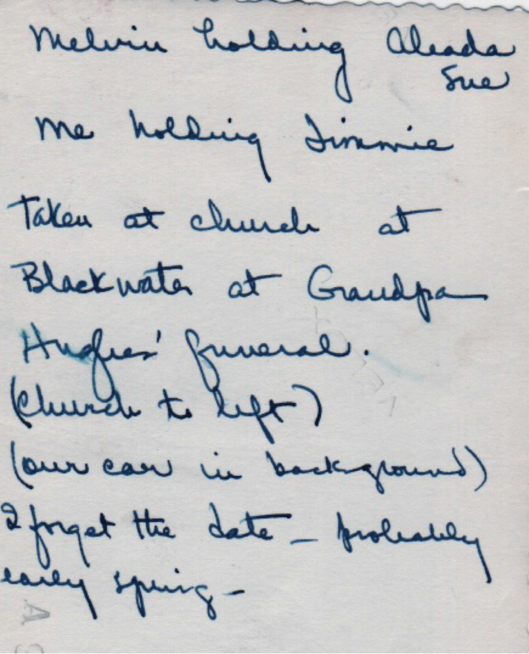 Melvin holding Aleada
Sue
Me holding Jimmie
Taken at church at
Blackwater at Grandpa
Hughes' funeral.
(Church to left)
(our car in background)
I forget the date - probably
early spring -